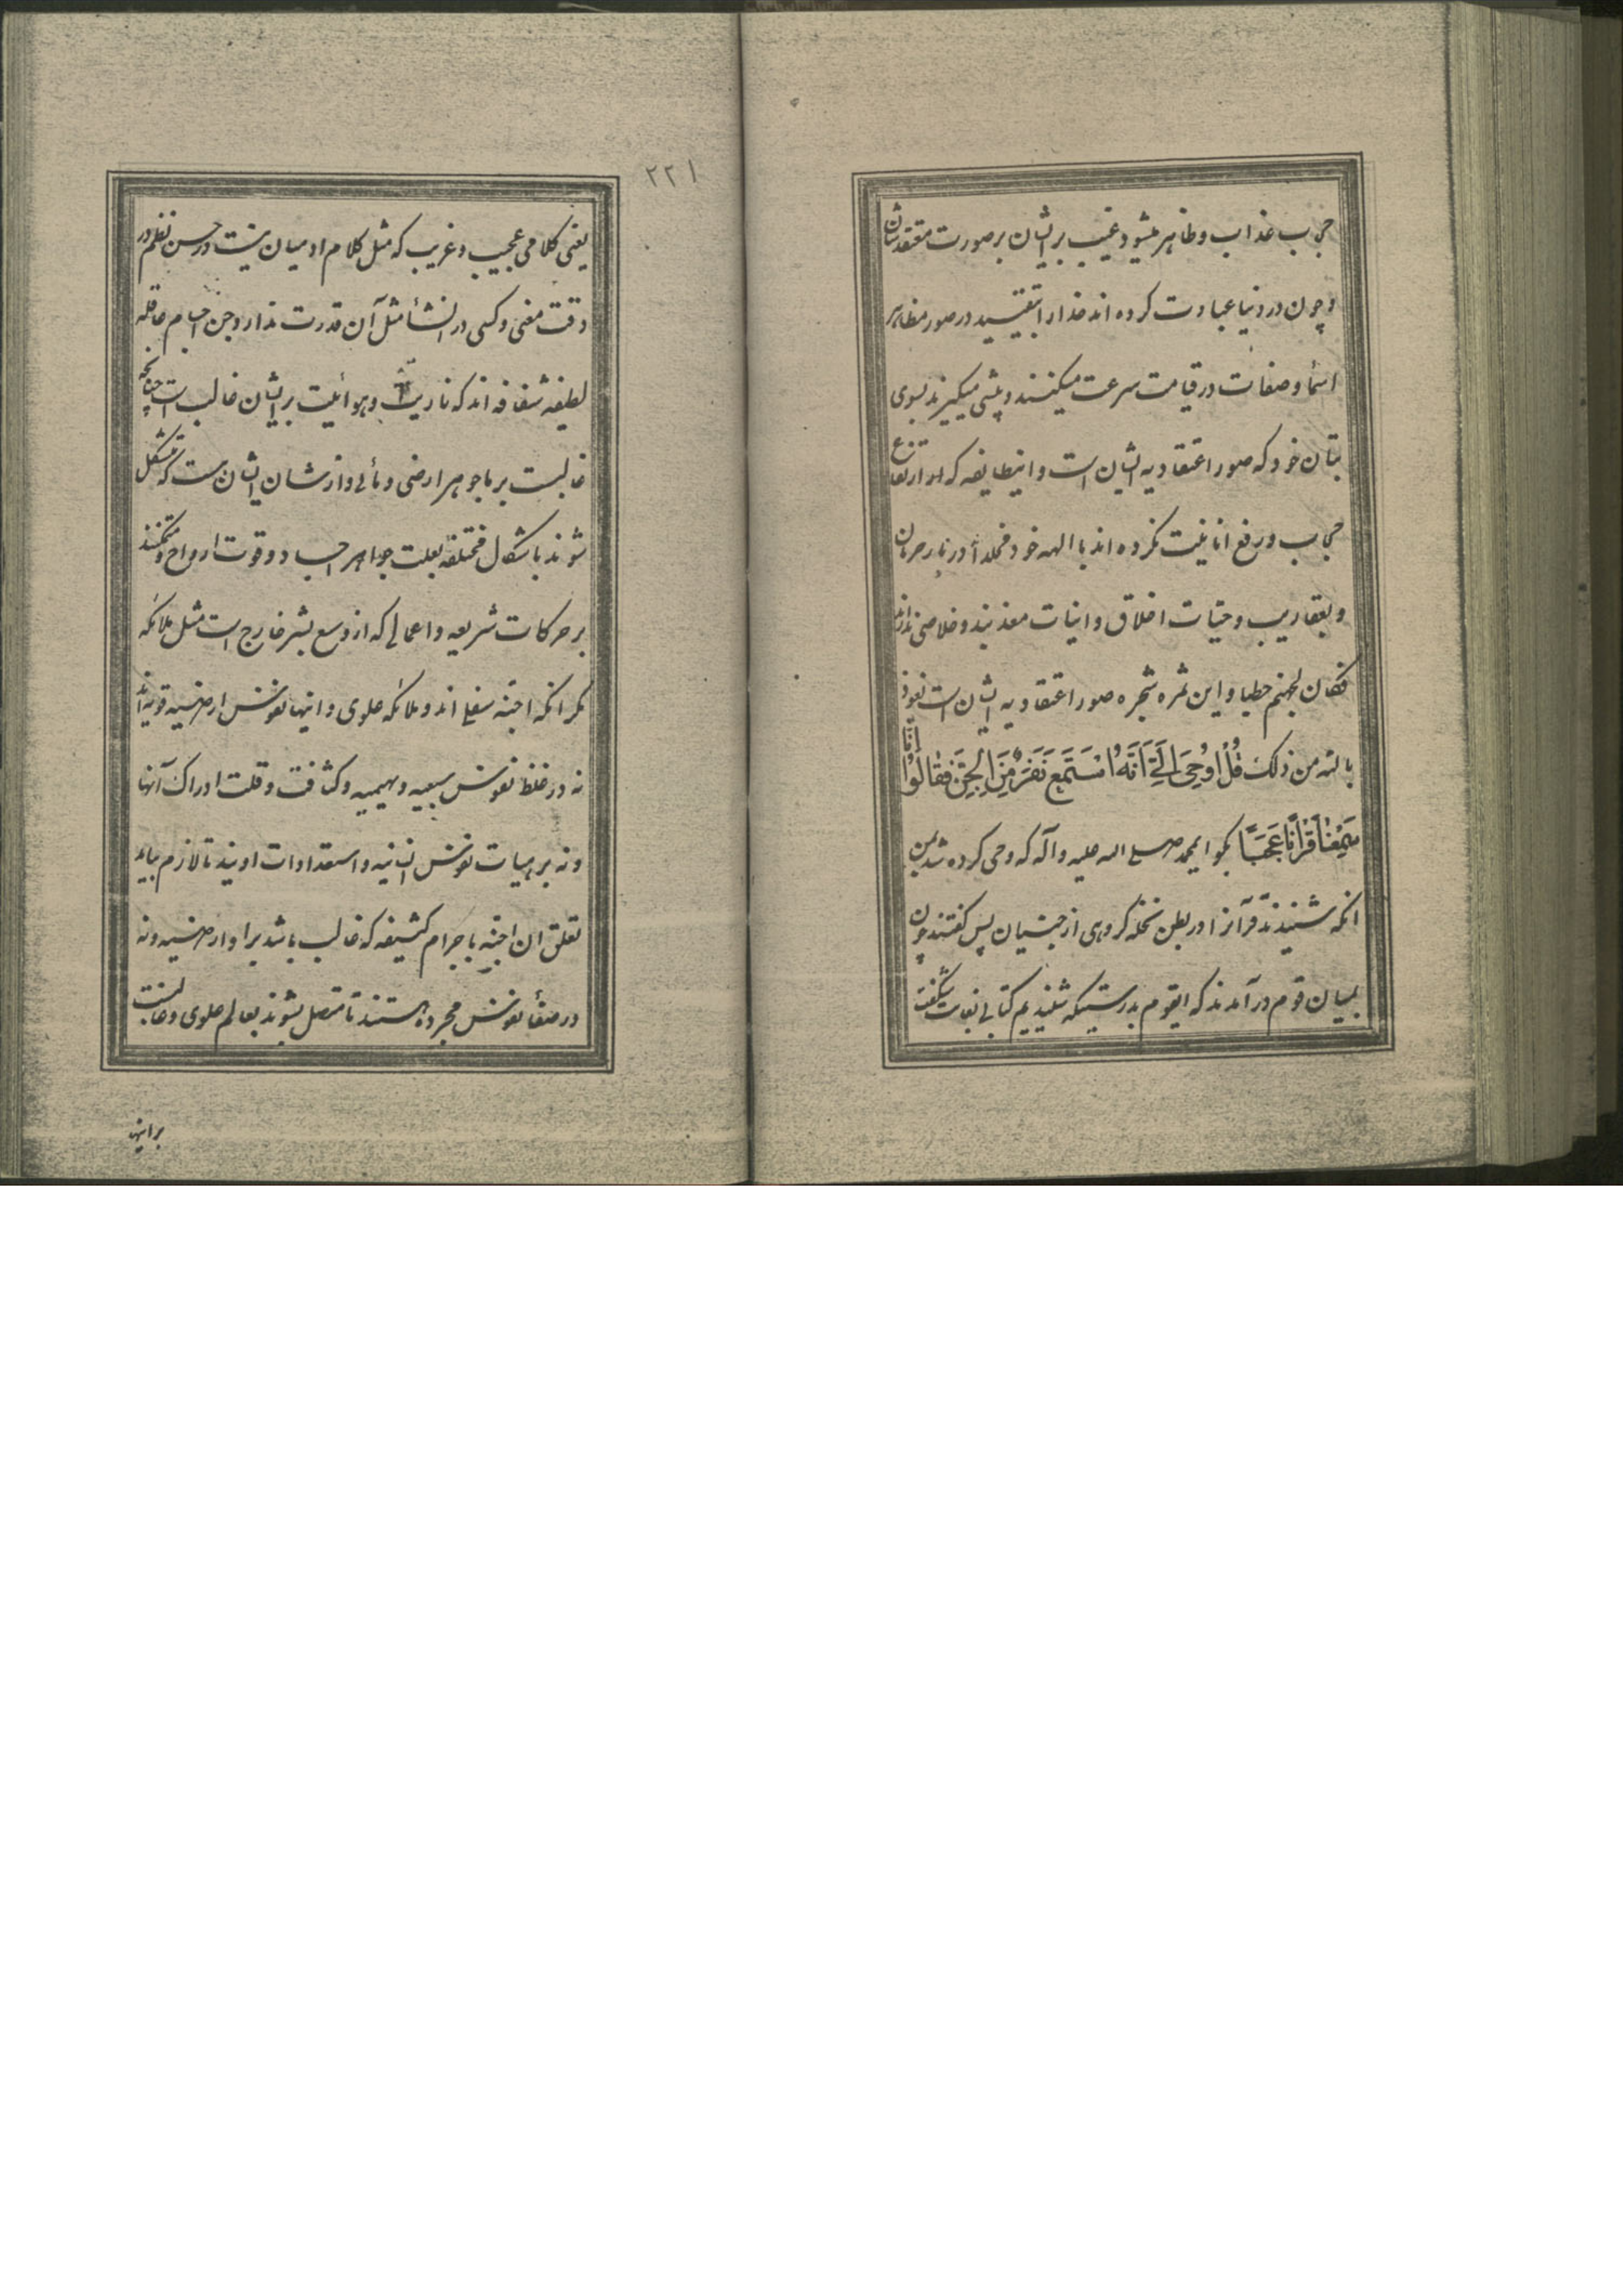 حجاب عذاب و ظاهر میشود غیب بر ایشان بر صورت معتقدشان
و چون در دنیا عبادت کرده اند خدا را بتقیید در صور مظاهر
اسما و صفات در قیامت سرعت میکنند و پیشی میکیرند بسوی
بتان خود که صور اعتقادیه ایشان است و اینطایفه که
حجاب و رفع انانیت نکرده اند با الهه خود مخلداً در نار حرمان
و بعقاریب و حیات اخلاق و انیات معذبند و خلاصی ندارند
فکان لجهنم حطبا و این ثمره شجره صور اعتقادیه ایشان است نعوذ
بالله من ذلک قُلْ اُوحِیَ اِلَیَّ اَنَّهُ اسْتَمَعَ نَفَرٌ مِنَ الْجِنِّ فَقالُوا اِنّا
سَمِعْنا قُرْاٰناً عَجَباً بکو ایمحمد صلی الله علیه و آله که وحی کرده شد بمن
انکه شنیدند قرآنرا در بطن نخله کروهی از جنیان پس کفتند چون
بمیان قوم در آمدند که ایقوم بدرستیکه شنیدیم کتابی بغایت شکفت
۲۲۱
یعنی کلامی عجیب و غریب که مثل کلام ادمیان نیست در حسن نظم و در
دقت معنی و کسی در انشأ مثل آن قدرت ندارد و جن اجسام عاقله
لطیفه شفافه اند که ناریت و هوائیت بر ایشان غالب است چنانچه
غالبست بر ما جوهر ارضی و مائی و از شان ایشان است که متشکل
شوند باشکال مختلفه بعلت جواهر اجساد و قوت ارواح و متمکنند
بر حرکات سریعه و اعمالی که از وسع بشر خارج است مثل ملائکه
مکر انکه اجنه سفلی اند و ملائکه علوی و اینها نفوس ارضیه قویه اند
نه در غلظ نفوس سبعیه و بهیمیه و کثافت و قلت ادراک آنها
و نه بر هیات نفوس انسانیه و استعدادات اویند تا لازم بیاید
تعلق ان اجنه باجرام کثیفه که غالب باشد بر او ارضیه و نه
در صفأ نفوس مجرده هستند تا متصل بشوند بعالم علوی و غالبست
بر اینها